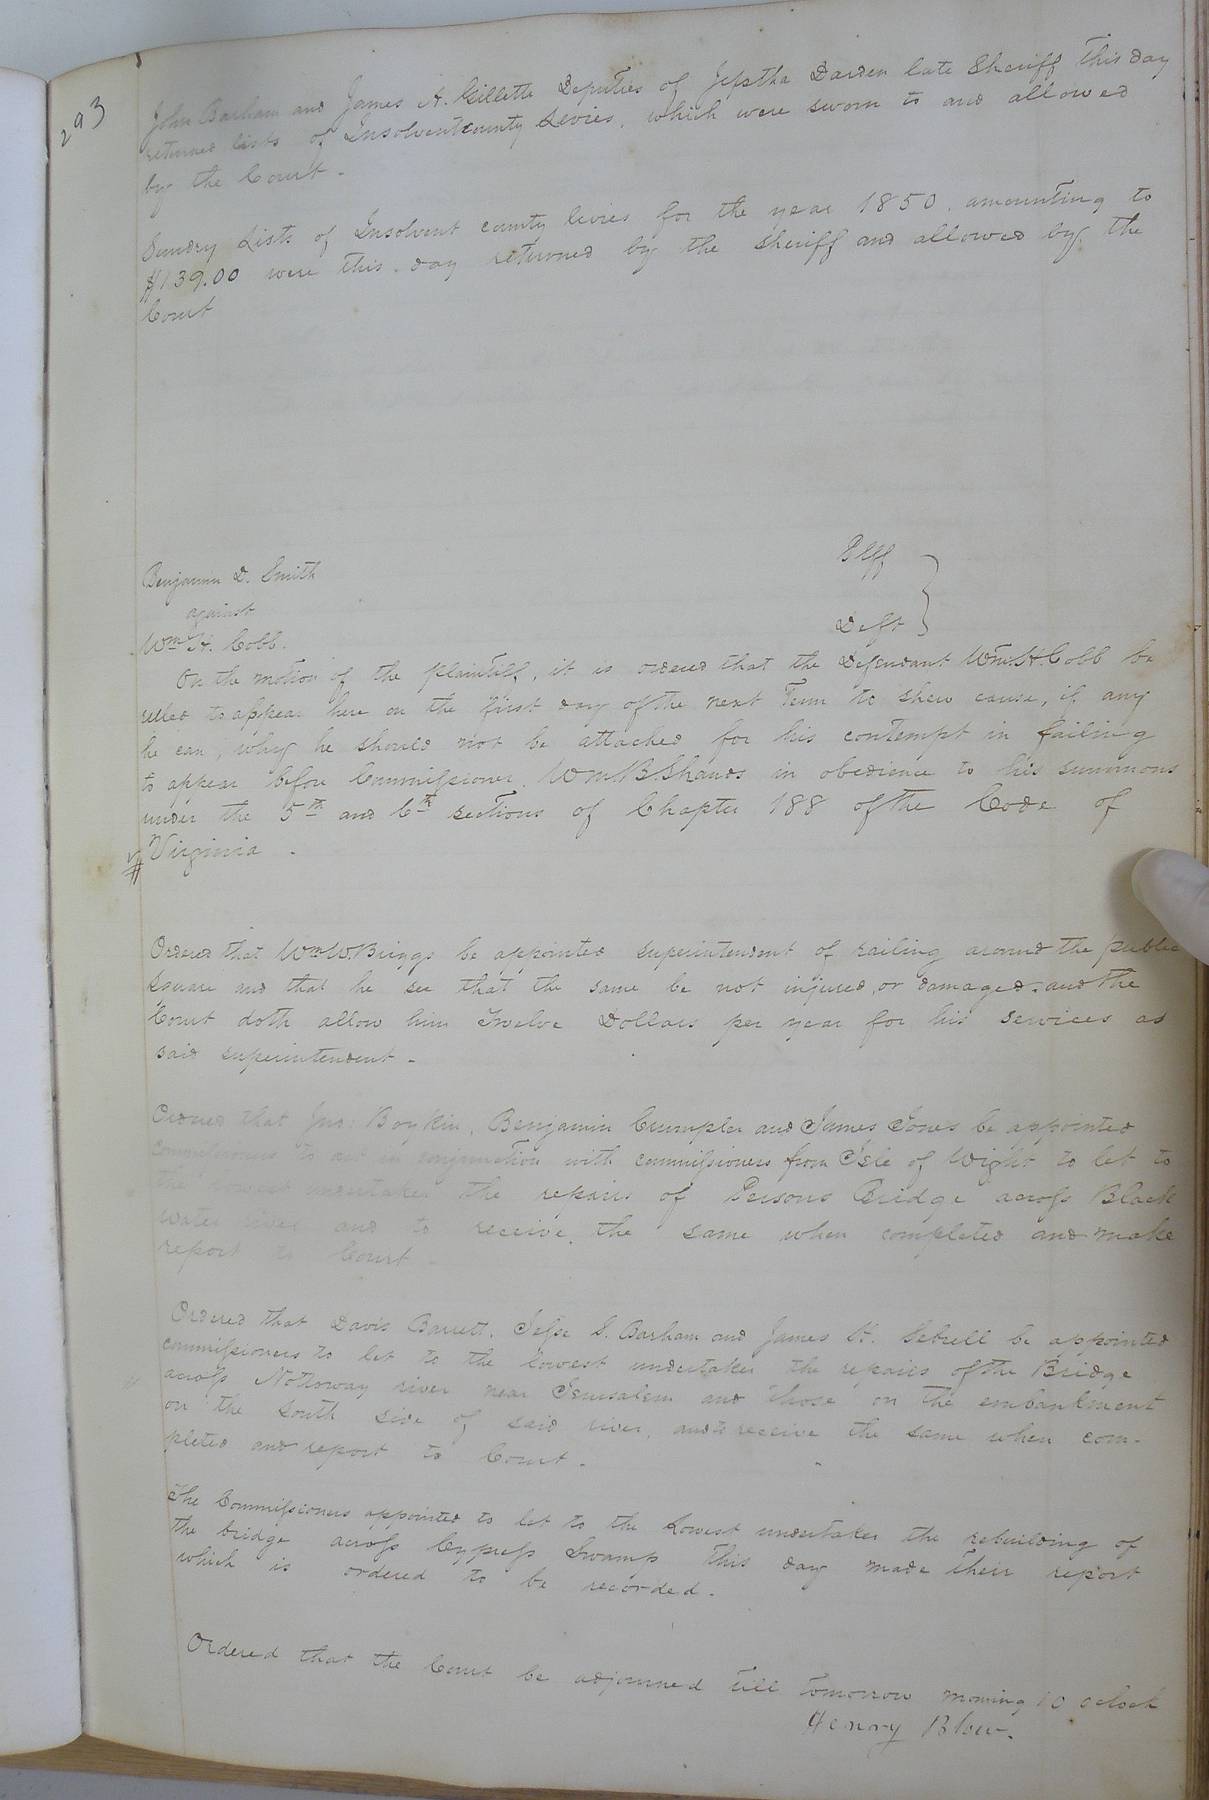 293
John Barham and James A. Gillette Deputies of Jepstha Darden late Sheriff this day
returned lists of Insolvent county levies, which were sworn to and allowed
by the Court -
Sundry Lists of Insolvent county levies for the year 1850. amounting to
$139.00 were this day returned by the Sheriff and allowed by the
Court
Benjamin D. Smith Plff
against
Wm H. Cobb. Deft
On the motion of the plaintiff, it is ordered that the Defendant Wm. H Cobb be
ruled to appear here on the first day of the next Term to shew cause, if any
he can, why he should not be attached for his contempt in failing
to appear before Commissioner Wm B Shands in obedience to his summons
under the 5th and 6th sections of Chapter 188 of the Code of
Virginia -
Ordered that Wm W. Briggs be appointed superintendent of railing around the public
square and that he see that the same be not injured, or damaged. and the
Court doth allow him Twelve Dollars per year for his services as
said superintendent -
Ordered that Jno: Boykin, Benjamin Crumpler and James Jones be appointed
commissioners to act in conjunction with commissioners from Isle of Wight to let to
the lowest undertaker the repairs of Persons Bridge across Black
water river and to receive the same when completed and make
report to Court -
Ordered that Davis Barrett, Jesse S. Barham and James H. Sebrell be appointed
commissioners to let to the lowest undertaker the repairs of the Bridge
across Nottoway river near Jerusalem and those on the embankment
on the south side of said river, and to receive the same when com-
pleted and report to Court -
The Commissioners appointed to let to the Lowest undertaker the rebuilding of
the bridge across Cypress Swamp this day made their report
which is ordered to be recorded -
Ordered that the Court be adjourned till tomorrow morning 10 oclock
Henry Blow.